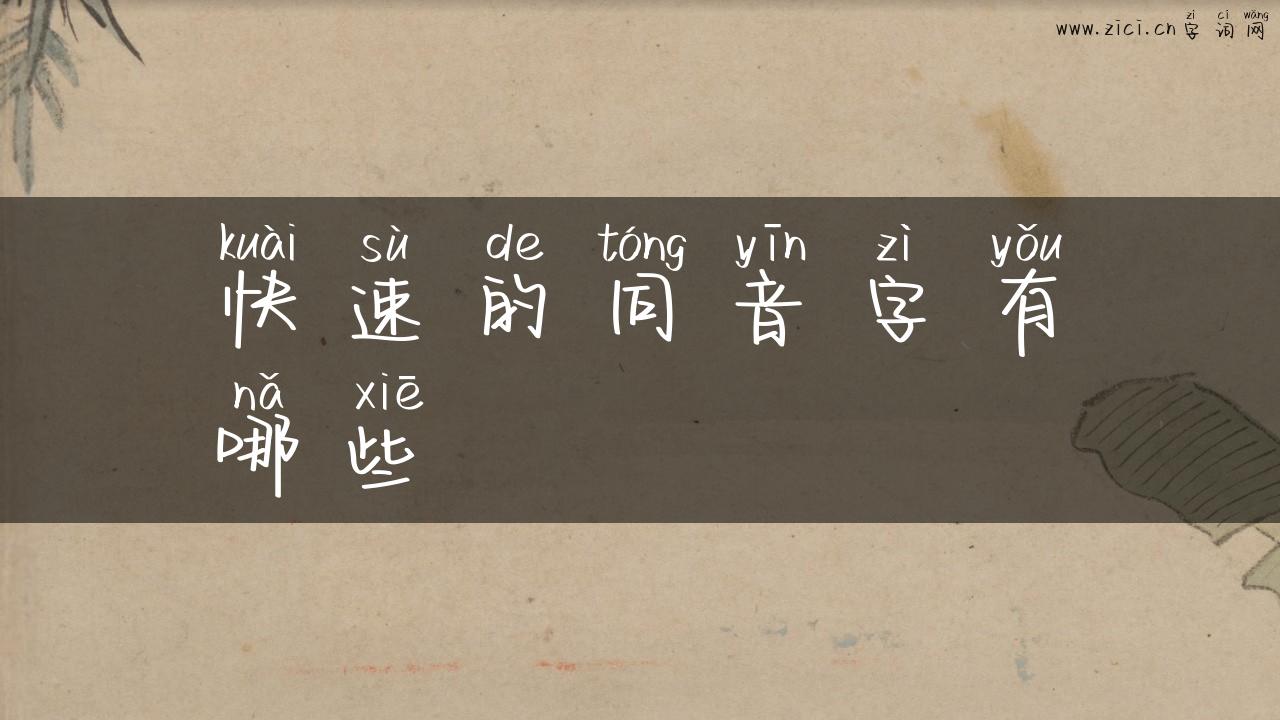 zì cí wǎng
www.zici.cn 字 词 网
kuài sù de tóng yīn zì yǒu
快 速 的 同 音 字 有
nǎ xiē
哪 些